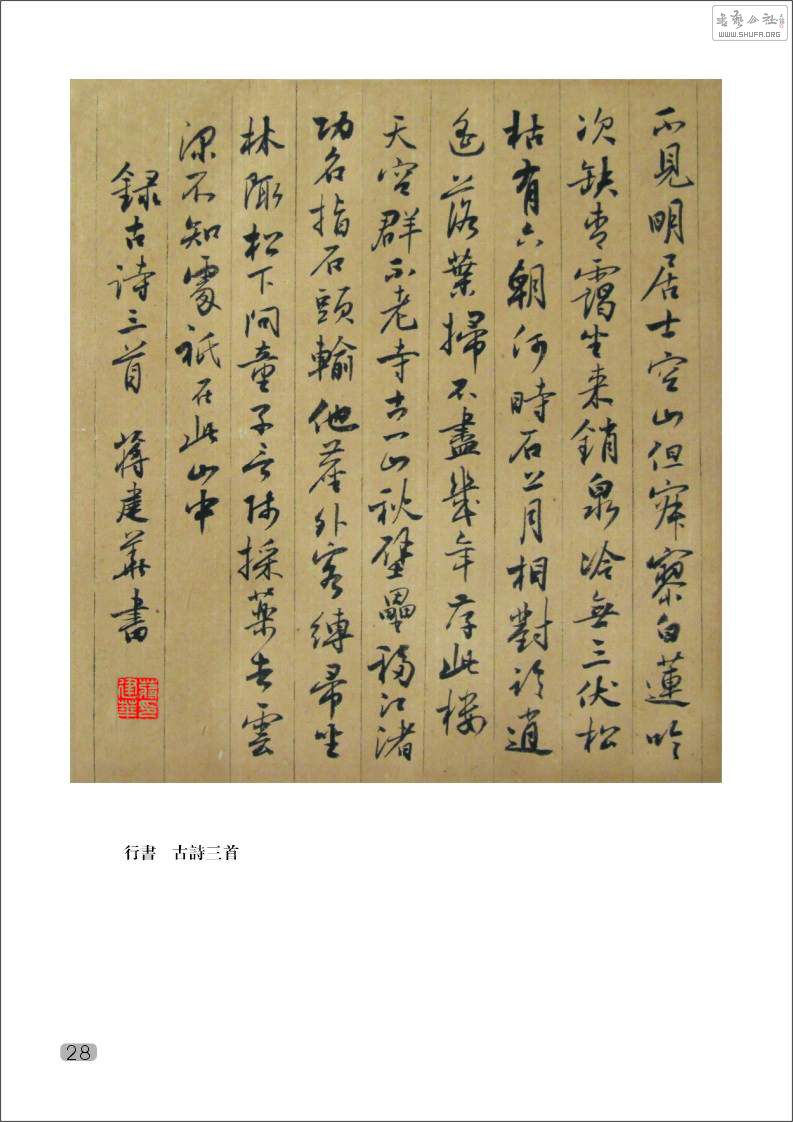 書藝公社
WWW.SHUFA.ORG
不見明居士空山但寂寥白蓮吟
次缺青靄坐來銷泉冷無三伏松
枯有六朝何時石上月相對論逍
遙落葉掃不盡幾年存此樓
天空群不老寺古一山秋壁壘移江渚
功名指石頭輸他塵外客縛帚坐
林陬松下問童子言師採藥去雲
深不知處祇在此山中
録古诗三首 蔣建華書
行書 古詩三首
28